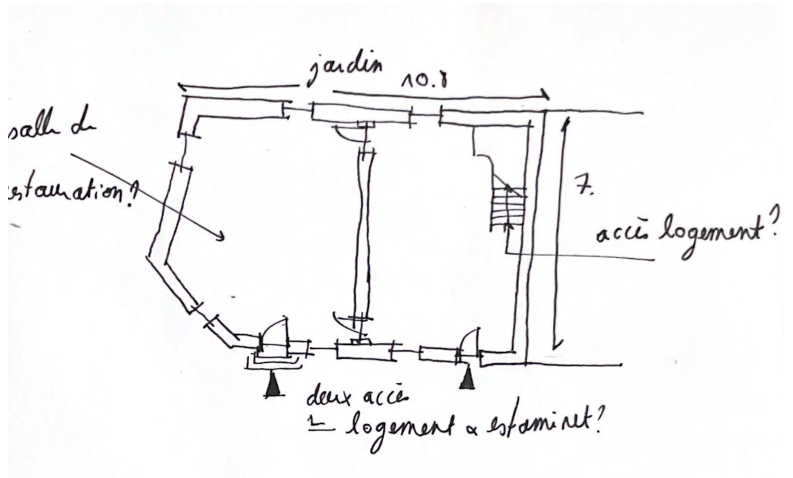 jardin
10.8
salle de
estauration?
7.
accès logement?
deux accès
logement & estaminet?